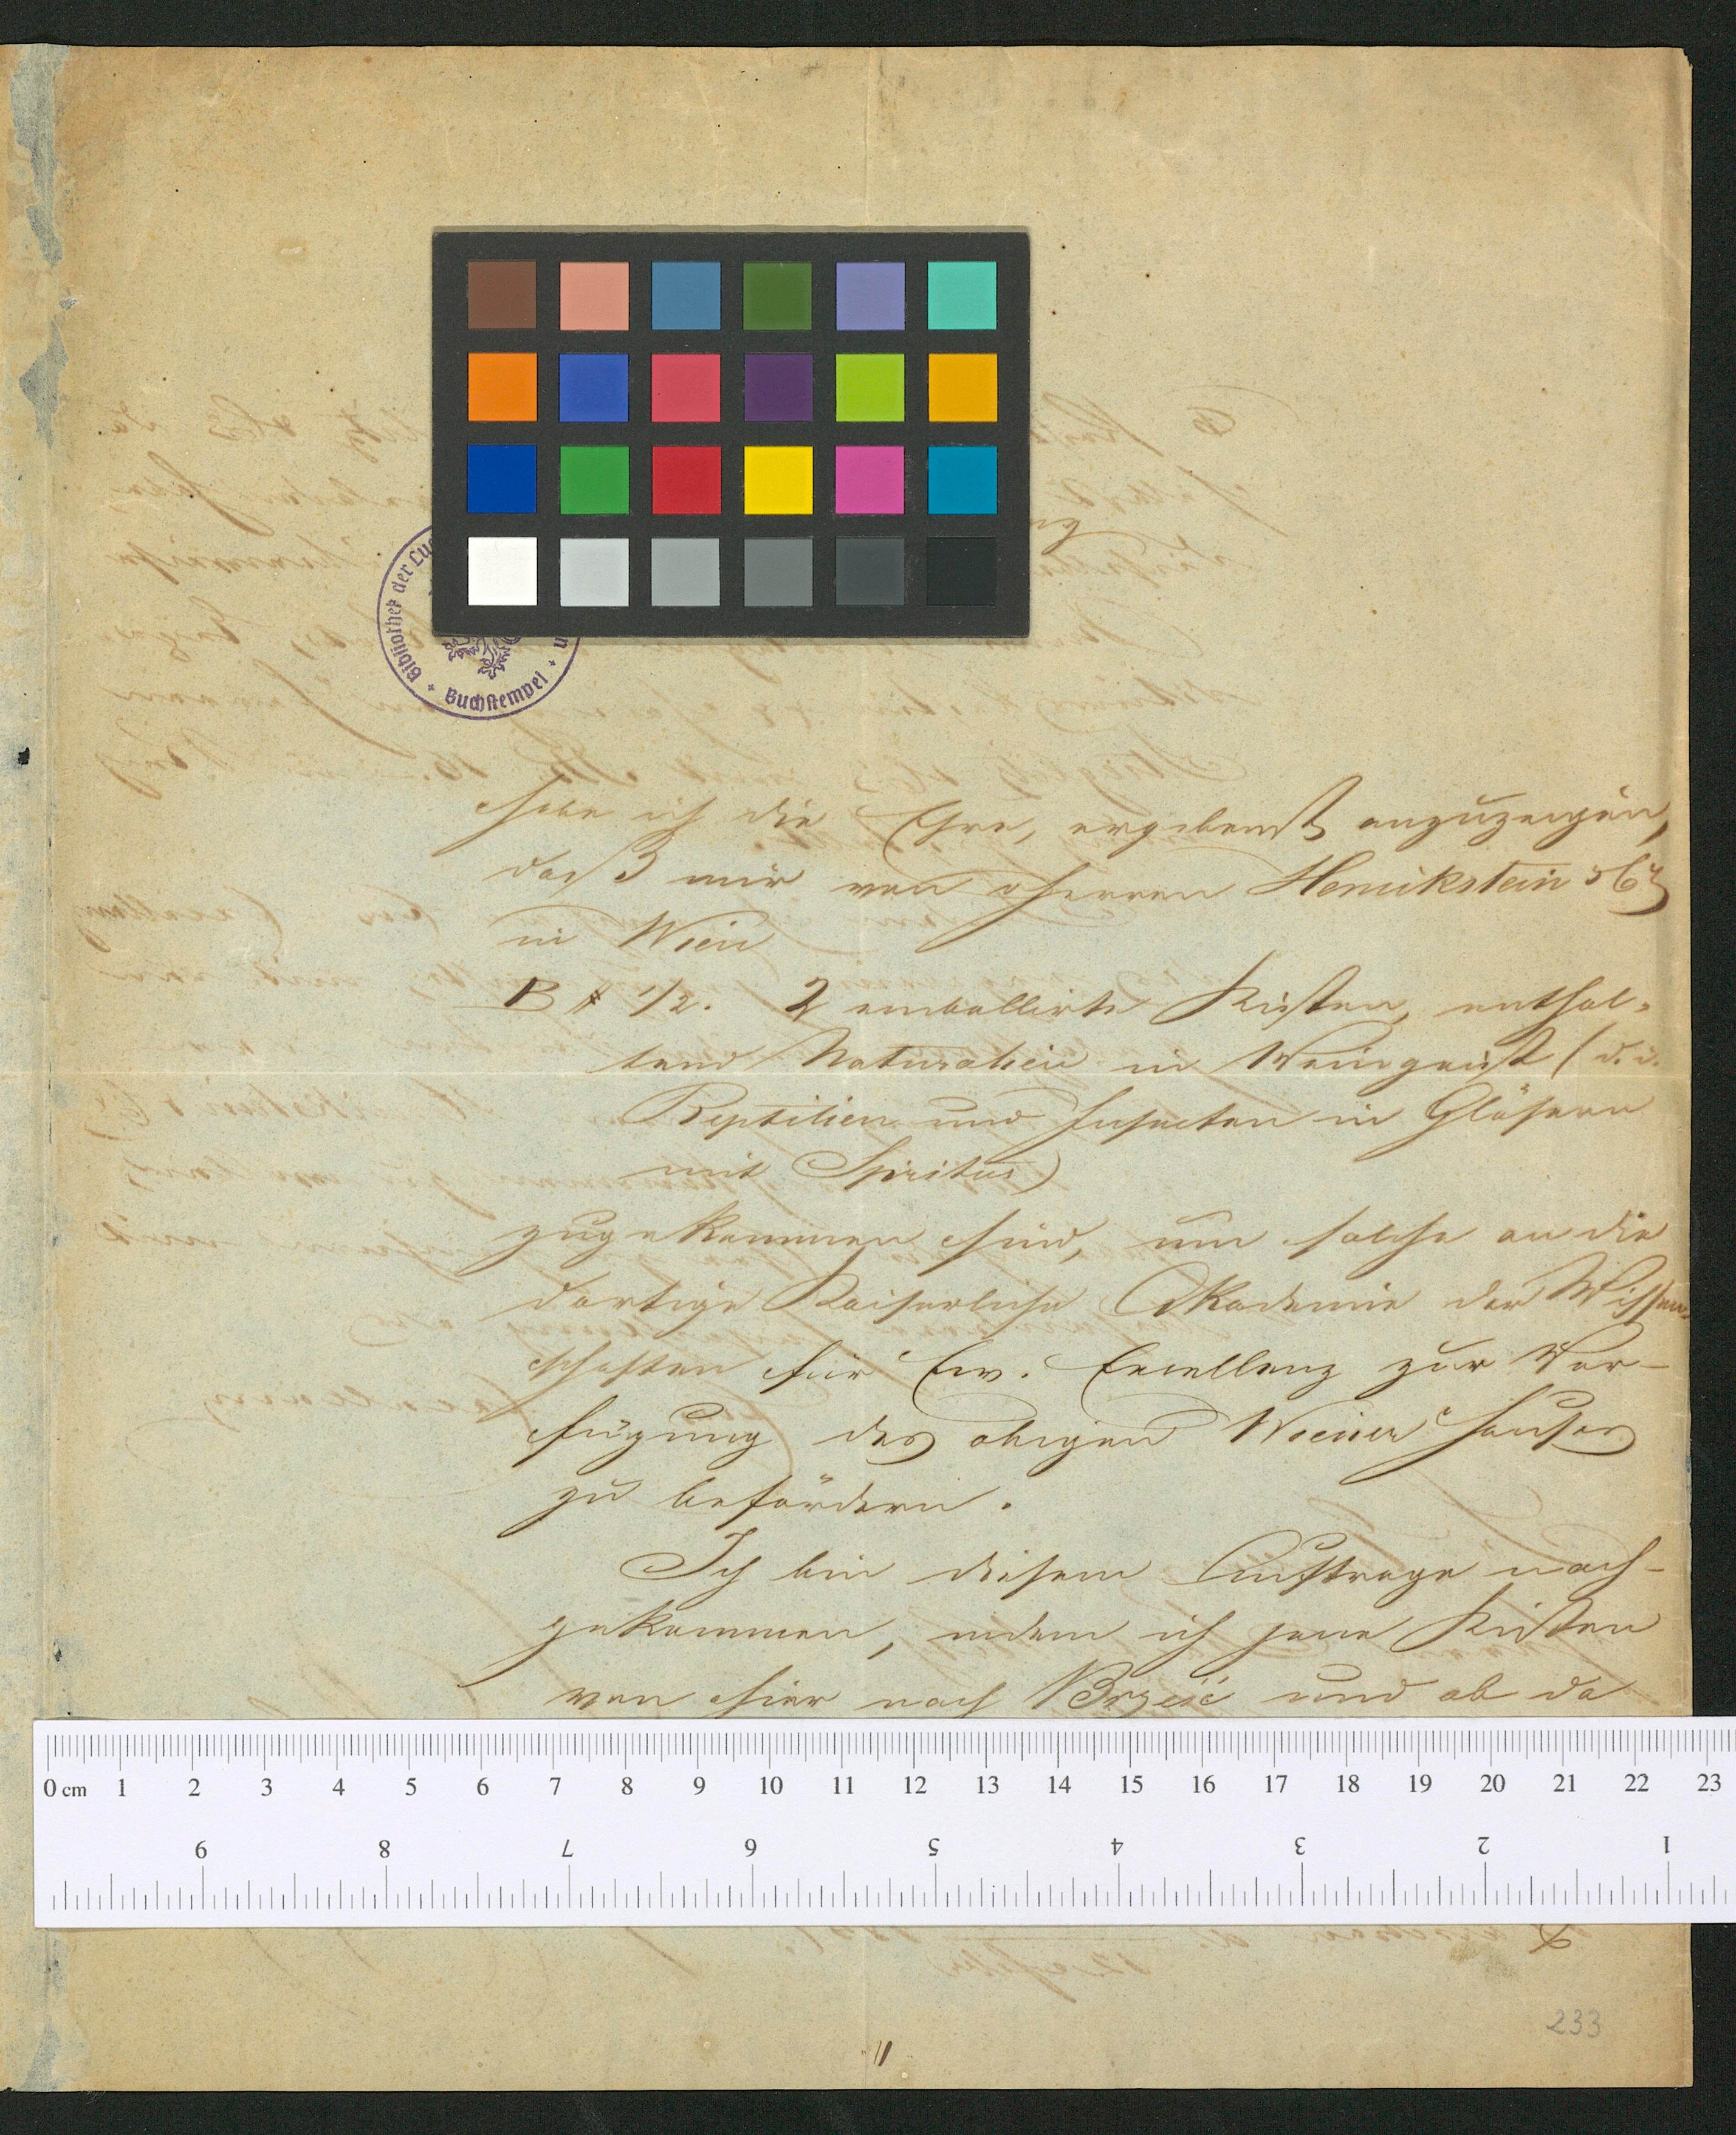 Bibliothek der
Buchstempel
habe ich die Ehre, ergebenst anzuzeigen,
daß mir von Herren Henikstein & Co
in Wien
B # 1/2. 2 emballirte Kisten, enthal-
tend Naturalien in Weingeist (d. i.
Reptilien und Insecten in Gläsern
mit Spiritus)
zugekommen sind, um solche an die
dortige Kaiserliche Akademie der Wissen-
schaften für Ew. Excellenz zur Ver-
fügung des obigen Wiener Hauses
zu befördern.
Ich bin diesem Auftrage nach-
gekommen, indem ich jene Kisten
von hier nach Brześć und ab da
0 cm 1 2 3 4 5 6 7 8 9 10 11 12 13 14 15 16 17 18 19 20 21 22 23
9 8 7 6 5 4 3 2 1
233